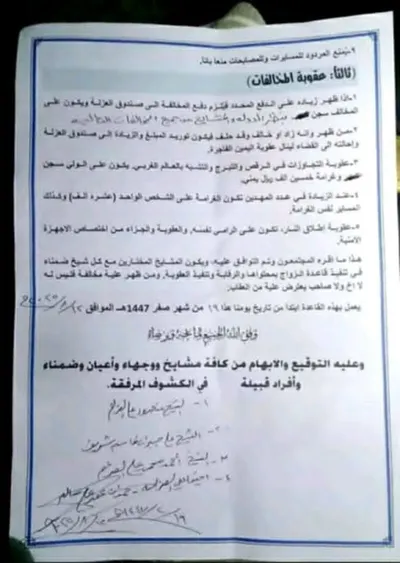 ٩-يمنع المردود للمسايرات وللمصابحات منعا باتا.
(ثالثا: عقوبة المخالفات)
١-إذا ظهر زيادة على الدفع المحدد فيلتزم دفع المخالفة الى صندوق العزلة ويكون على
المخالف سجن
٢-من ظهر وانه زاد او خالف وقد حلف فيكون توريد المبلغ والزيادة إلى صندوق العزلة
وإحالته الى القضاء لينال عقوبة اليمين الفاجرة.
٣-عقوبة التجاوزات في الرقص والتبرج والتشبه بالعالم الغربي. يكون على الولي سجن
وغرامة خمسين الف ريال يمني.
٤-عند الزيادة في عدد المهدين تكون الغرامة على الشخص الواحد (عشره الف) وكذلك
المساير نفس الغرامة.
٥-عقوبة إطلاق النار، تكون على الرامي نفسه، والعقوبة والجزاء من اختصاص الاجهزة
الأمنية.
هذا ما اقره المجتمعون وتم التوافق عليه، ويكون المشايخ المختارين مع كل شيخ ضمناء
في تنفيذ قاعدة الزواج بمحتواها والرقابة وتنفيذ العقوبة، ومن ظهر عليه مخالفة فليس له
لا اخ ولا صاحب يعترض علية من العقاب.
يعمل بهذه القاعدة ابتدأ من تاريخ يومنا هذا ١٩ من شهر صفر 1447هـ الموافق
وفق الله الجميع لما يحبه ويرضاه
وعليه التوقيع والابهام من كافة مشايخ ووجهاء وأعيان وضمناء
وأفراد قبيلة في الكشوف المرفقة.
١-
٢- الشيخ
٣- الشيخ أحمد
٤-